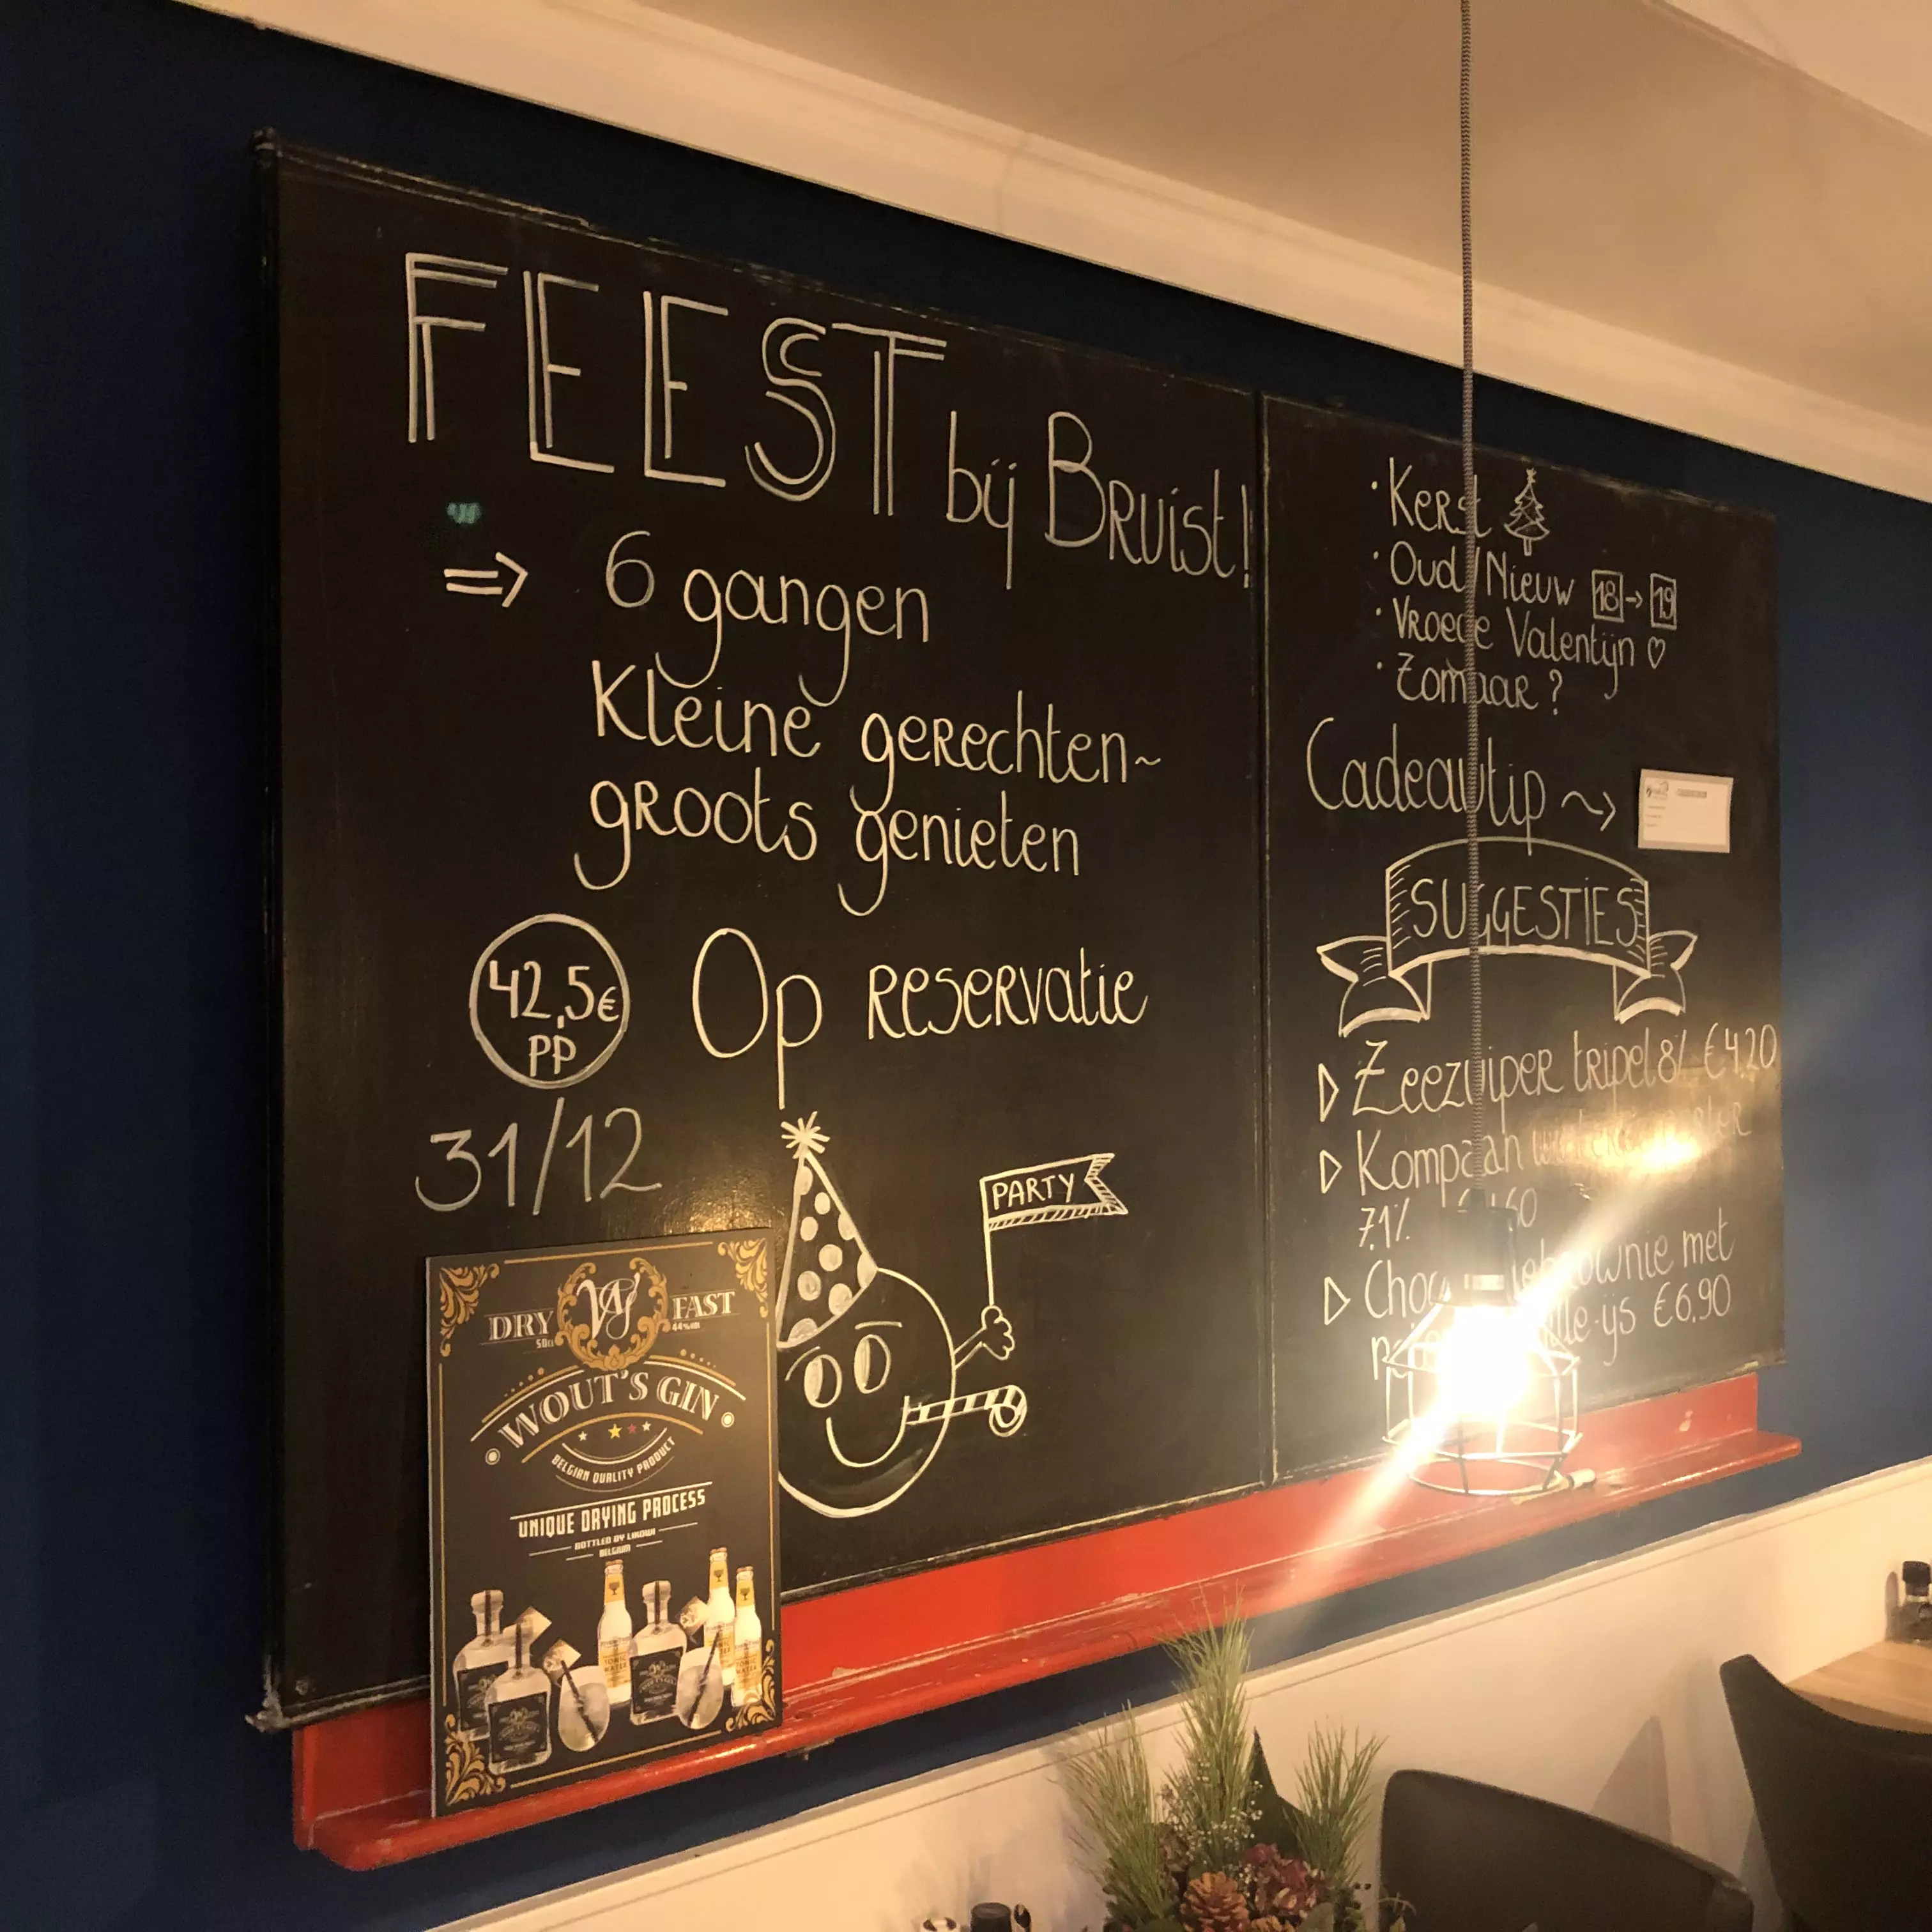 FEEST bij Bruist!
=> 6 gangen
Kleine gerechten~
groots genieten
42,5€
PP
Op reservatie
31/12
PARTY
DRY FAST
50cl 44%vol
WOUT'S GIN
BELGIAN QUALITY PRODUCT
UNIQUE DRYING PROCESS
BOTTLED BY LIKOWI
BELGIUM
TONIC
WATER
· Kerst
· Oud/Nieuw 18 → 19
· Vroege Valentijn ♡
· Zomaar ?
Cadeautip ~>
SUGGESTIES
▷ Zeezuiper tripel 8% €4.20
▷ Kompaan
7.1%
▷ met
ijs €6.90